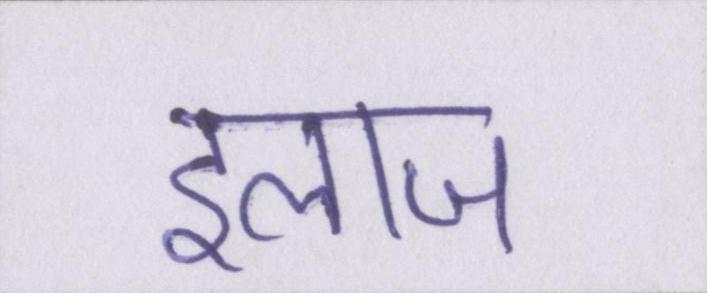 इलाज